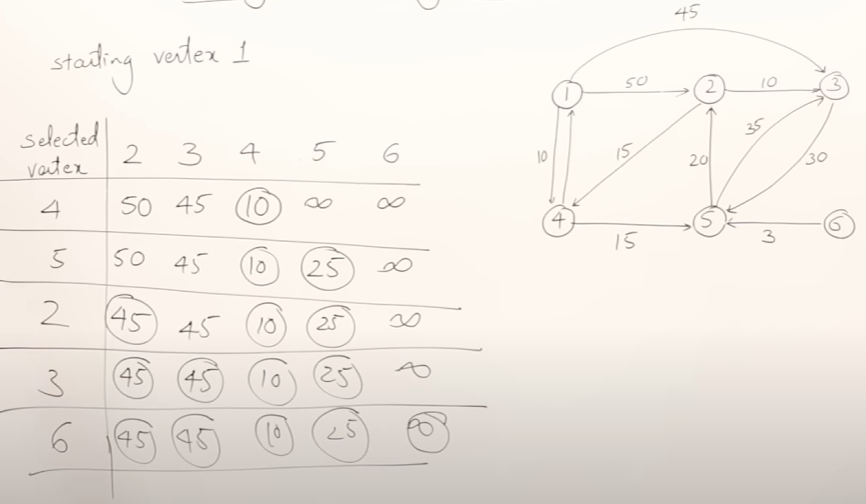 starting vertex 1
selected vertex 2 3 4 5 6
4 50 45 10 ∞ ∞
5 50 45 10 25 ∞
2 45 45 10 25 ∞
3 45 45 10 25 ∞
6 45 45 10 25 ∞
45
1 50 2 10 3
10 15 20 35 30
4 15 5 3 6